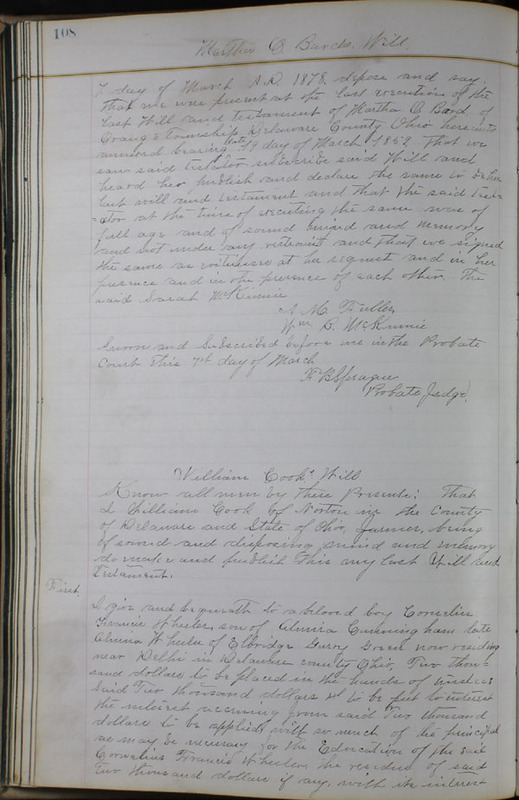 108
Martha O Bards Will
7 day of March A.D. 1878, depose and say
that we were present at the last execution of the
last Will and testament of Martha O Bard of
Orange Township Delaware County Ohio hereunto
annexed bearing date 19 day of March 1862 that we
saw said testator subscribe said Will and
heard her publish and declare the same to be her
last will and testament and that the said testa
=tor at the time of executing the same was of
full age and of sound mind and memory
and not under any restraint and that we signed
the same as witnesses at her request and in her
presence and in the presence of each other. The
said Sarah McKinnie
A. M. Fuller
Wm B. McKinnie
Sworn and Subscribed before me in the Probate
Court this 7th day of March
F B Sprague
Probate Judge.
William Cooks Will
Know all men by these Presents: That
I William Cook of Norton in the County
of Delaware and State of Ohio, farmer, being
of sound and disposing mind and memory
do make and publish this my last Will and
Testament.
First.
I give and bequeath to a beloved boy Cornelius
Francis Wheeler, son of Almira Cunningham late
Almira Wheeler of Elbridge Gerry Green now residing
near Delhi in Delaware county Ohio, Two thou=
sand dollars to be placed in the hands of trustees
Said Two thousand dollars to be put to interest
the interest accruing from said Two thousand
dollars to be applied with so much of the principal
as may be necessary for the Education of the said
Cornelius Francis Wheeler, the residue of said
Two thousand dollars if any, with its interest